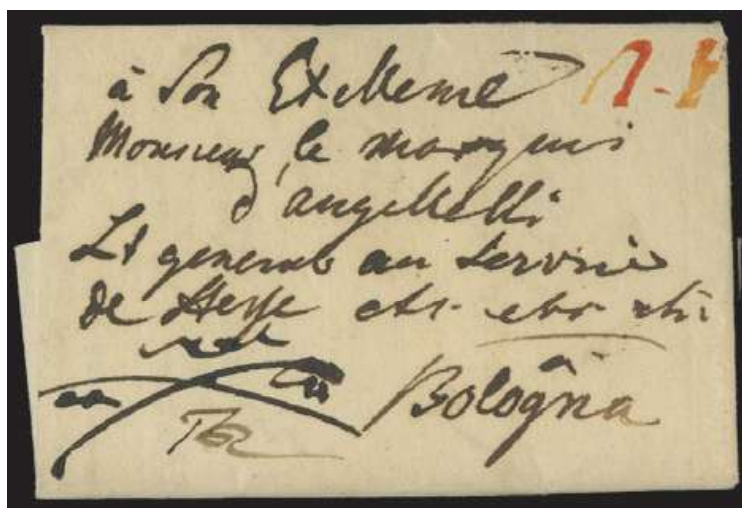 à Son Exellence
Monsieur le marquis
d'angellelli
Lt general au Service
de Hesse etc. etc. etc.
à
Bologna